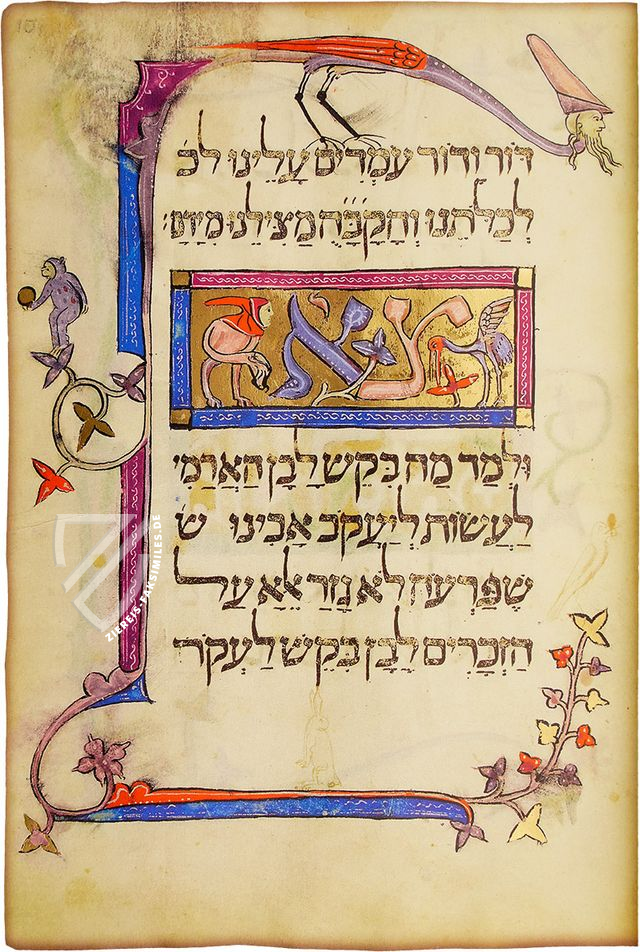 דּוֹר וָדוֹר עמְדִים עָלֵינוּ לכ
לְכַלֹּתֵנוּ וְהַקָּבָּ״הֻ מַצִּילֵנוּ מִיָּדָם׃
צא
וּלְמַד מַה בִּקֵּשׁ לָבָן הָאֲרַמִּי
לַעֲשׂוֹת לְיַעֲקֹב אָבִינוּ ש
שֶׁפַּרְעֹה לֹא גָזַר אֶלָּא עַל
הַזְּכָרִים לָבָן בִּקֵּשׁ לַעְקֹר
ZIEREIS-FAKSIMILES.DE